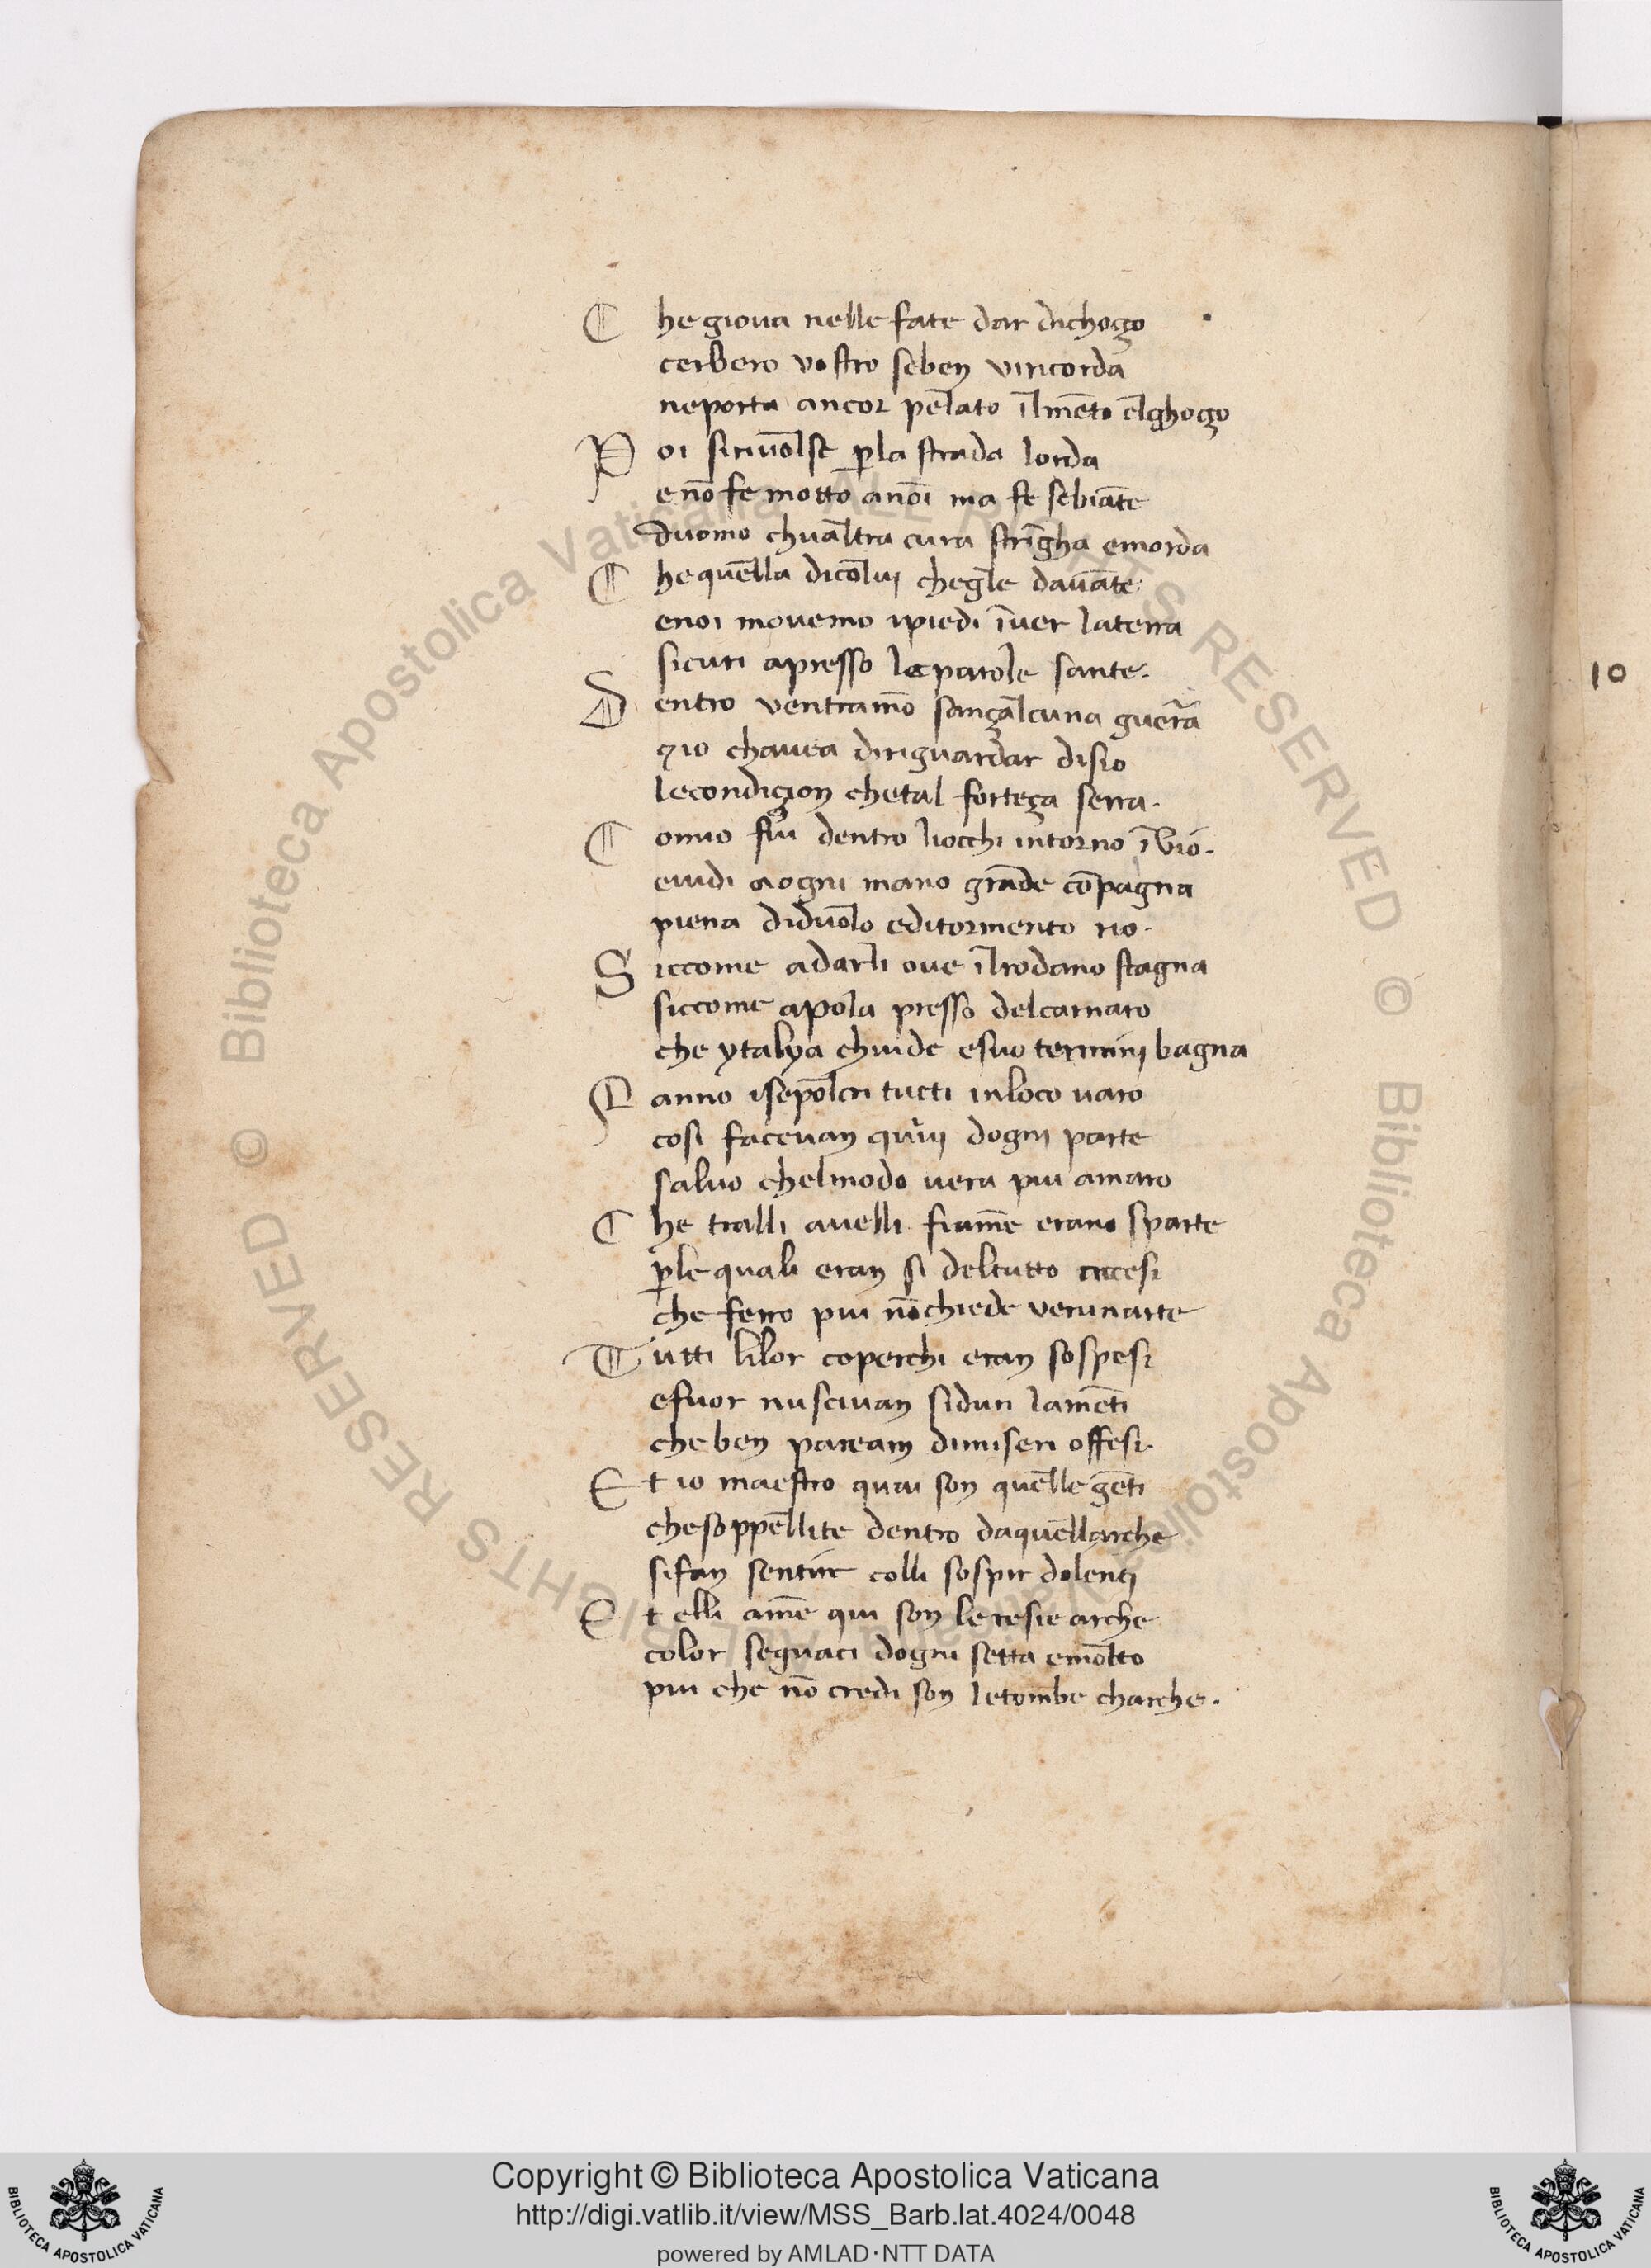 C he giova nelle fate dar dichogo
cerbero vostro seben viricorda
neporta ancor pel̄ato il̄mēto el̄ghogo
P oi sirivol̄se ꝑla strada lorda
enō fe motto anōi ma fe sebiāte
duomo chual̄tra cura strīgha emorda
C he quel̄la dicol̄uj chegl̄e davāte
enoi movemo ipiedi īver laterra
sicuri apresso le parole sante.
D entro ventramō sançal̄cuna guerā
⁊ io chavea diriguardar disio
lecondiçion chetal forteça serra.
C omio fui dentro liocchi intorno īvio.
evidi aogni mano grāde cōpagna
piena diduol̄o editormento rio.
S iccome adarli ove il̄rodano stagna
siccome apola presso delcarnaro
che ytalya chiude esuo terminj bagna
F anno isepol̄cri tucti inloco varo
cosi facevan quiuj dogni parte
salvo chelmodo vera piu amaro
C he tralli avelli fiamē erano sparte
ꝑle quali eran si deltutto accesi
che ferro piu nōchiede verunarte
T utti lilor coperchi eran sospesi
efuor nusciuan sidun lamēti
cheben paream dimiseri offesi.
E t io maestro quai son quel̄le gēti
chesoppel̄lite dentro daquel̄larche
sifan sentire colli sospir dolentj
E t elli amē qui son leresiearche
color seguaci dogni setta emol̄to
piu che nō credi son letombe charche.
10
© Biblioteca Apostolica Vaticana ALL RIGHTS RESERVED © Biblioteca Apostolica Vaticana ALL RIGHTS RESERVED
Copyright © Biblioteca Apostolica Vaticana
http://digi.vatlib.it/view/MSS_Barb.lat.4024/0048
powered by AMLAD·NTT DATA
BIBLIOTECA APOSTOLICA VATICANA
BIBLIOTECA APOSTOLICA VATICANA